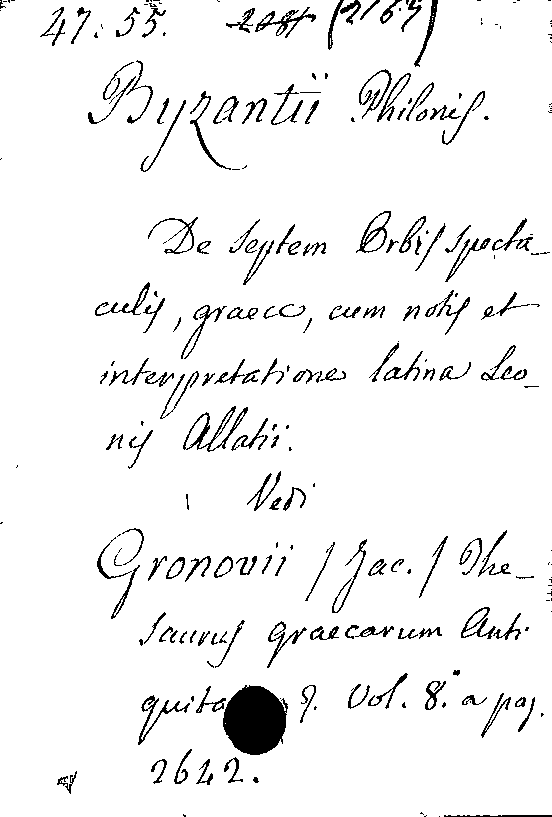 47. 55. 2084 (2164)
Byzantii Philonis.
De septem Orbis specta-
culis, graece, cum notis et
interpretatione latina Leo-
nis Allatii.
Vedi
Gronovii / Jac. / The-
saurus graecarum Anti
quita Vol. 8.° a pag.
2642.